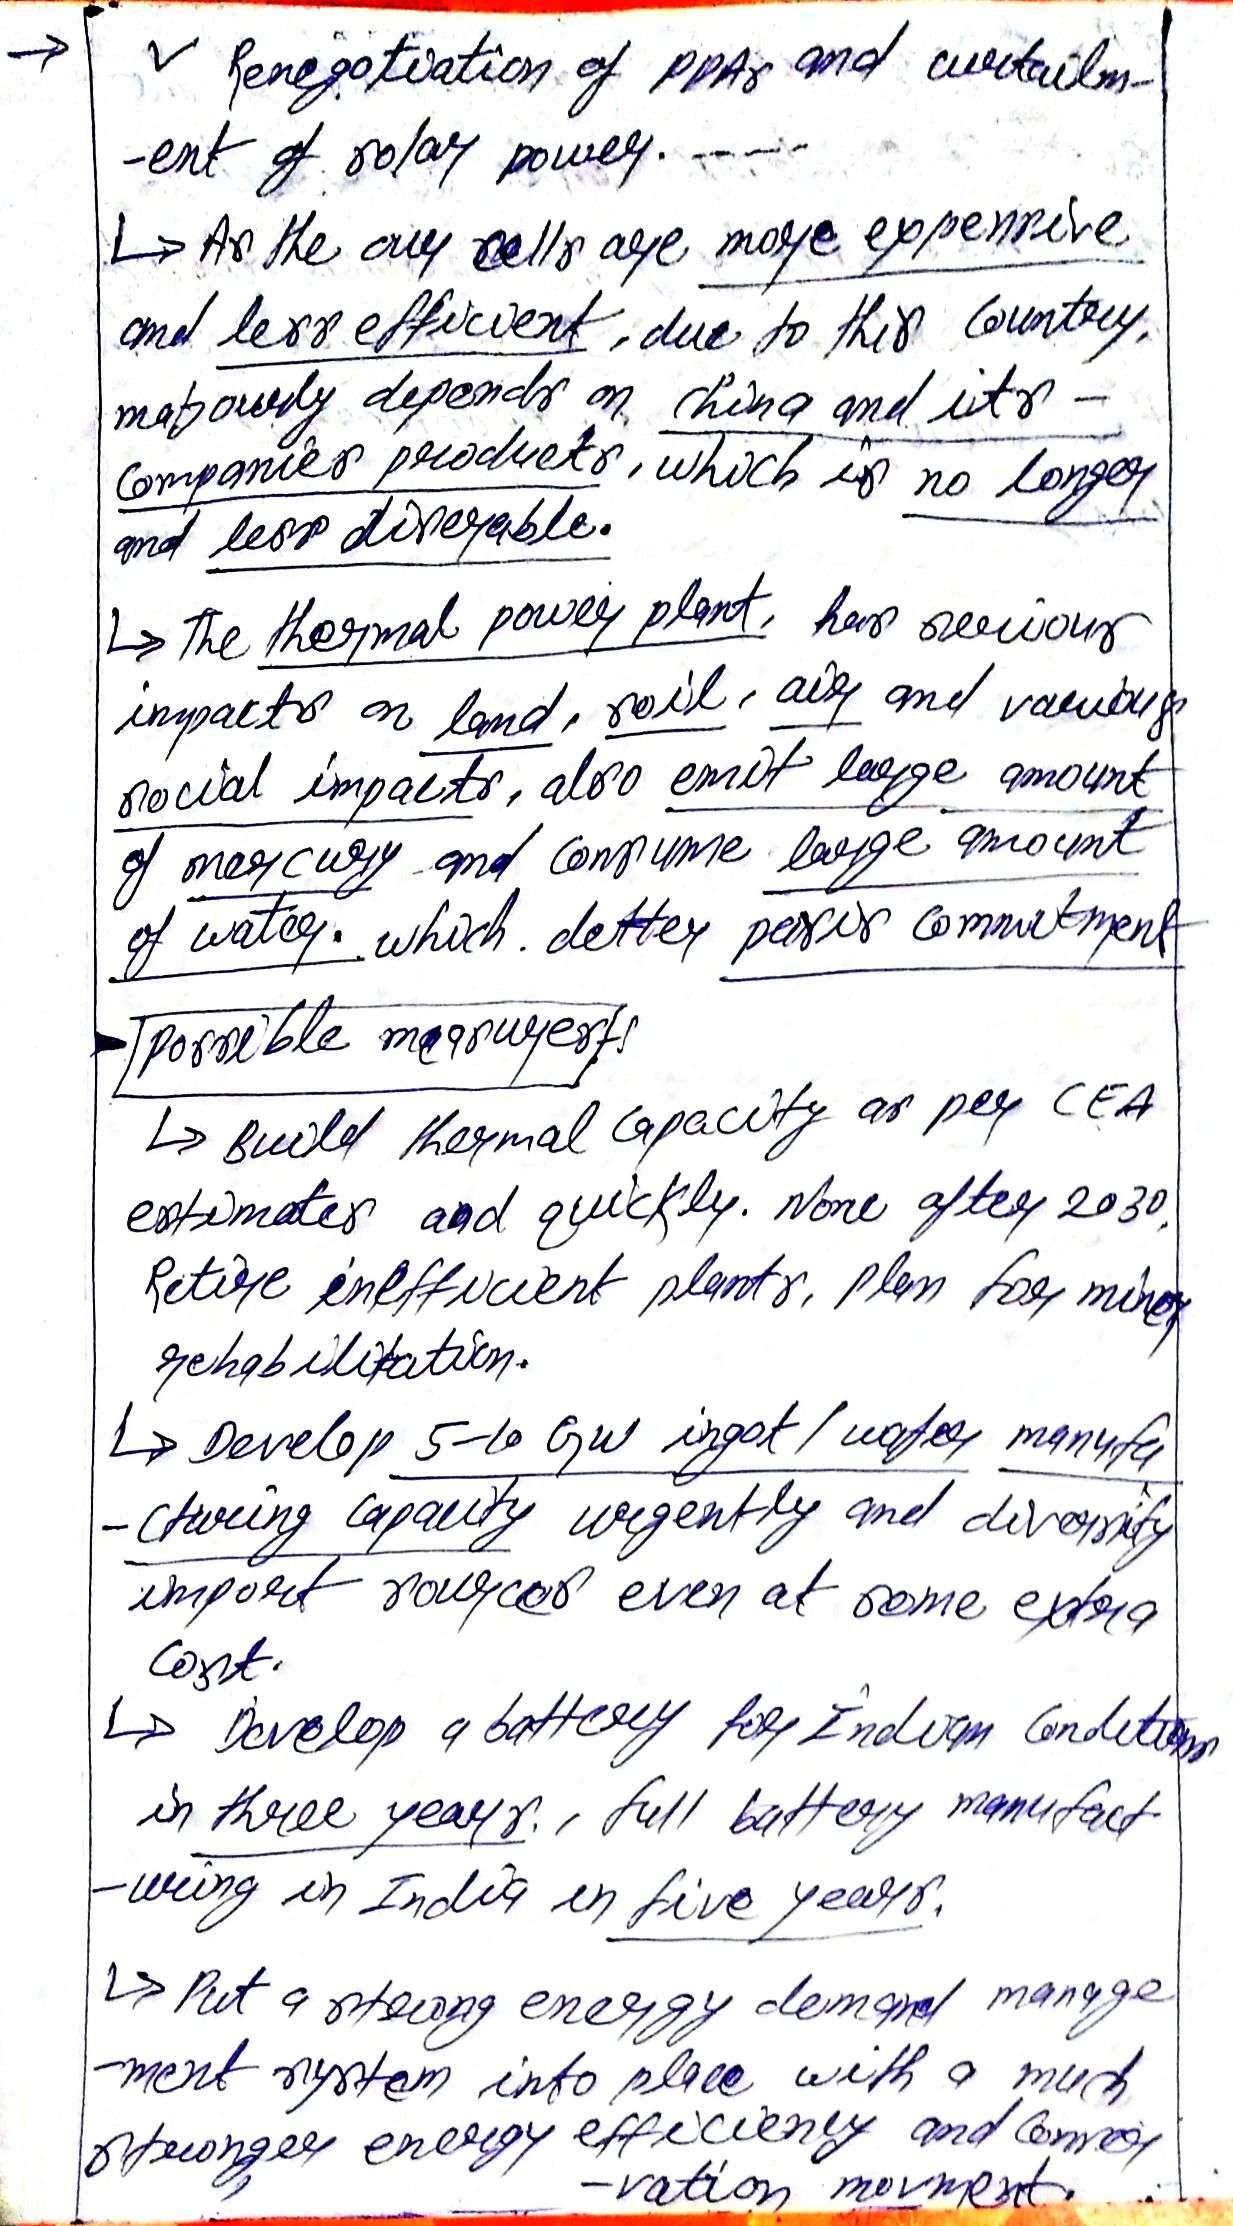 → ✓ Renegotiation of PPAs and curtailm-
-ent of solar power. ----
↳ As the our cells are more expensive
and less efficient, due to this country,
majourly depends on china and its -
companies products, which is no longer
and less diserable.
↳ The thermal power plant, has serious
impacts on land, soil, air and various
social impacts, also emit large amount
of mercury and consume large amount
of water. which detter paris commitment
possible measures
↳ Build thermal capacity as per CEA
estimates and quickly. None after 2030,
Retire inefficient plants, plan for miner
rehabilitation.
↳ Develop 5-6 GW ingot/wafer manufa
-cturing capacity urgently and diversify
import sources even at some extra
cost.
↳ Develop a battery for Indian Conditions
in three years., full battery manufact
-uring in India in five years.
↳ Put a strong energy demand manage
-ment system into place with a much
stronger energy efficiency and Conser
-vation movment.